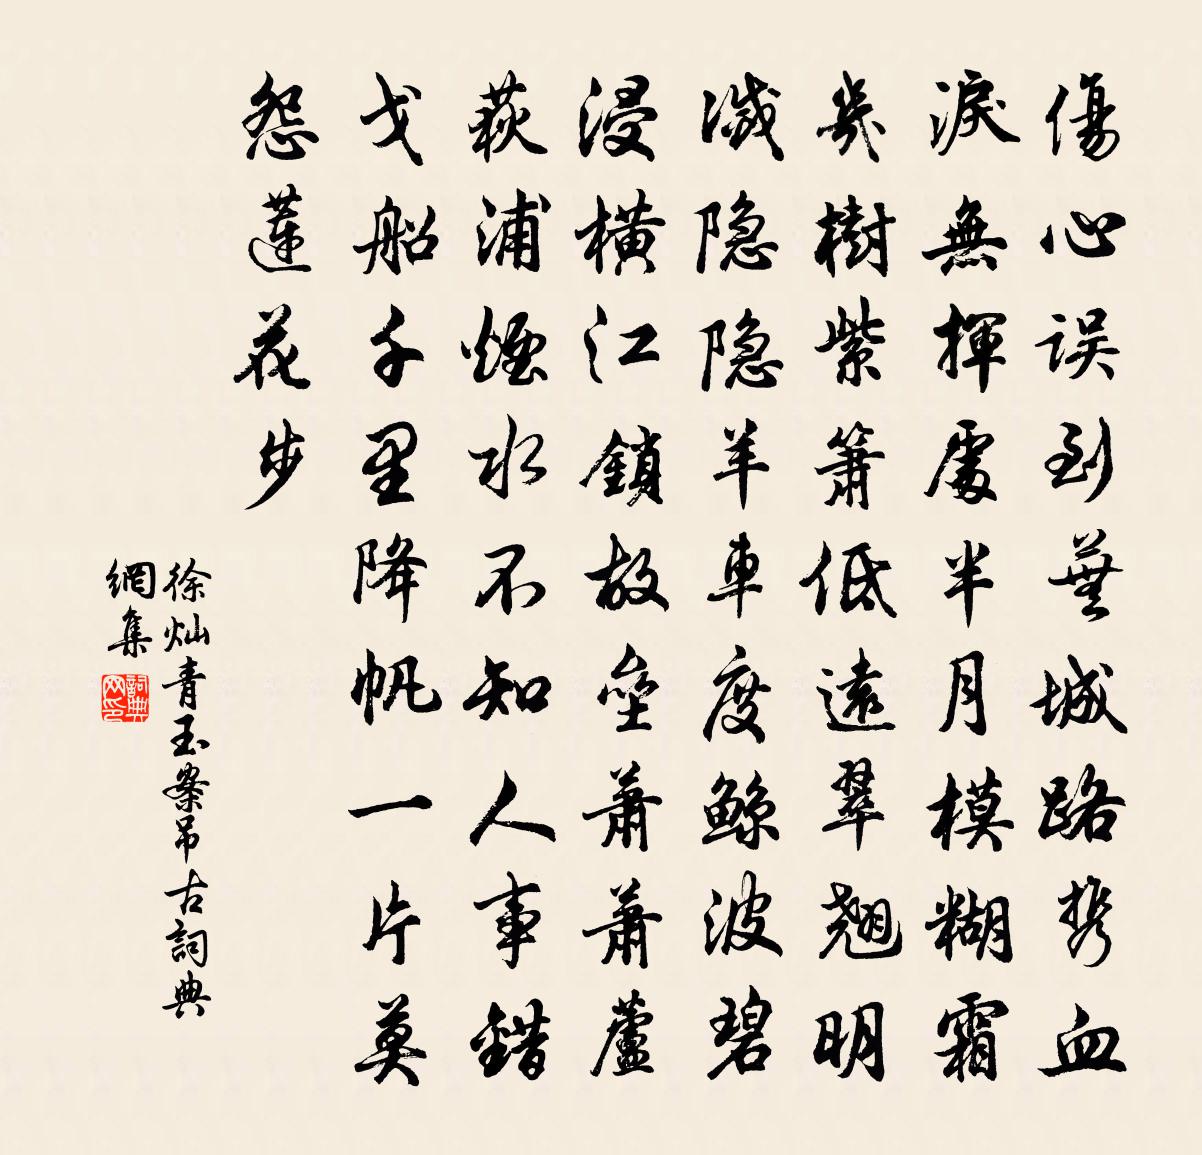 傷心误到蕪城路携血
淚無揮處半月模糊霜
幾樹紫簫低遠翠翹明
滅隐隐羊車度鲸波碧
浸橫江鎖故壘蕭蕭蘆
荻浦煙水不知人事錯
戈船千里降帆一片莫
怨蓮花步
徐灿青玉案吊古詞典
網集
詞典網印